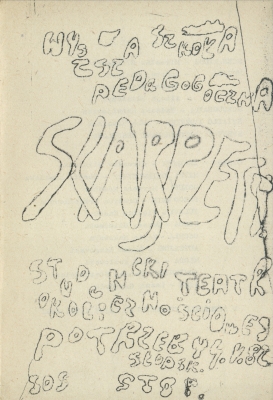 SZKOŁA
PEDAGOGICZNA
SKARPETA
STUDENCKI TEATR
OKOLICZNOŚCIOWEJ
POTRZEBY
SŁUPSK.
SOS STOP.